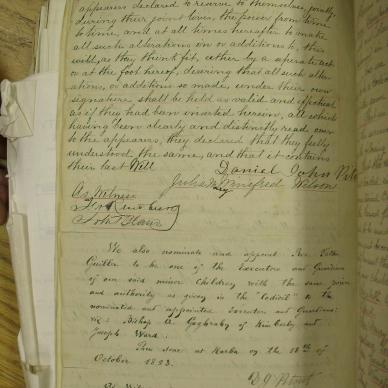 appearers declared to reserve to themselves, jointly,
during their joint lives, the power from time
to time, and at all times hereafter to make
all such alterations in or additions to this
will, as they think fit, either by a separate act
or at the foot hereof, desiring that all such alter-
ations, or additions so made, under their own
signature shall be held as valid and effectual
as if they had been inserted herein, all which
having been clearly and distinctly read over
to the appearers, they declared that they fully
understood the same, and that it contains
their last Will
Daniel John
Julia Winifred
As Witness
We also nominate and appoint Rev. Father
to be one of the Executors and Guardians
of our said minor children with the same power
and authority as given in the "Codicil" to the
nominated and appointed Executors and Guardians
viz: Bishop A. Gaghran of Kimberley and
Joseph Ward.
Thus done at on the 18th of
October 1893.